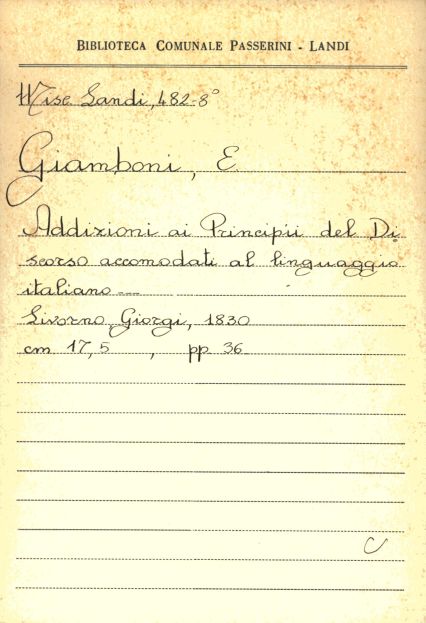 BIBLIOTECA COMUNALE PASSERINI - LANDI
Misc. Landi, 482-8°
Giamboni, E.
Addizioni ai Principii del Di
scorso accomodati al linguaggio
italiano ---
Livorno, Giorgi, 1830
cm 17,5 , pp 36
C